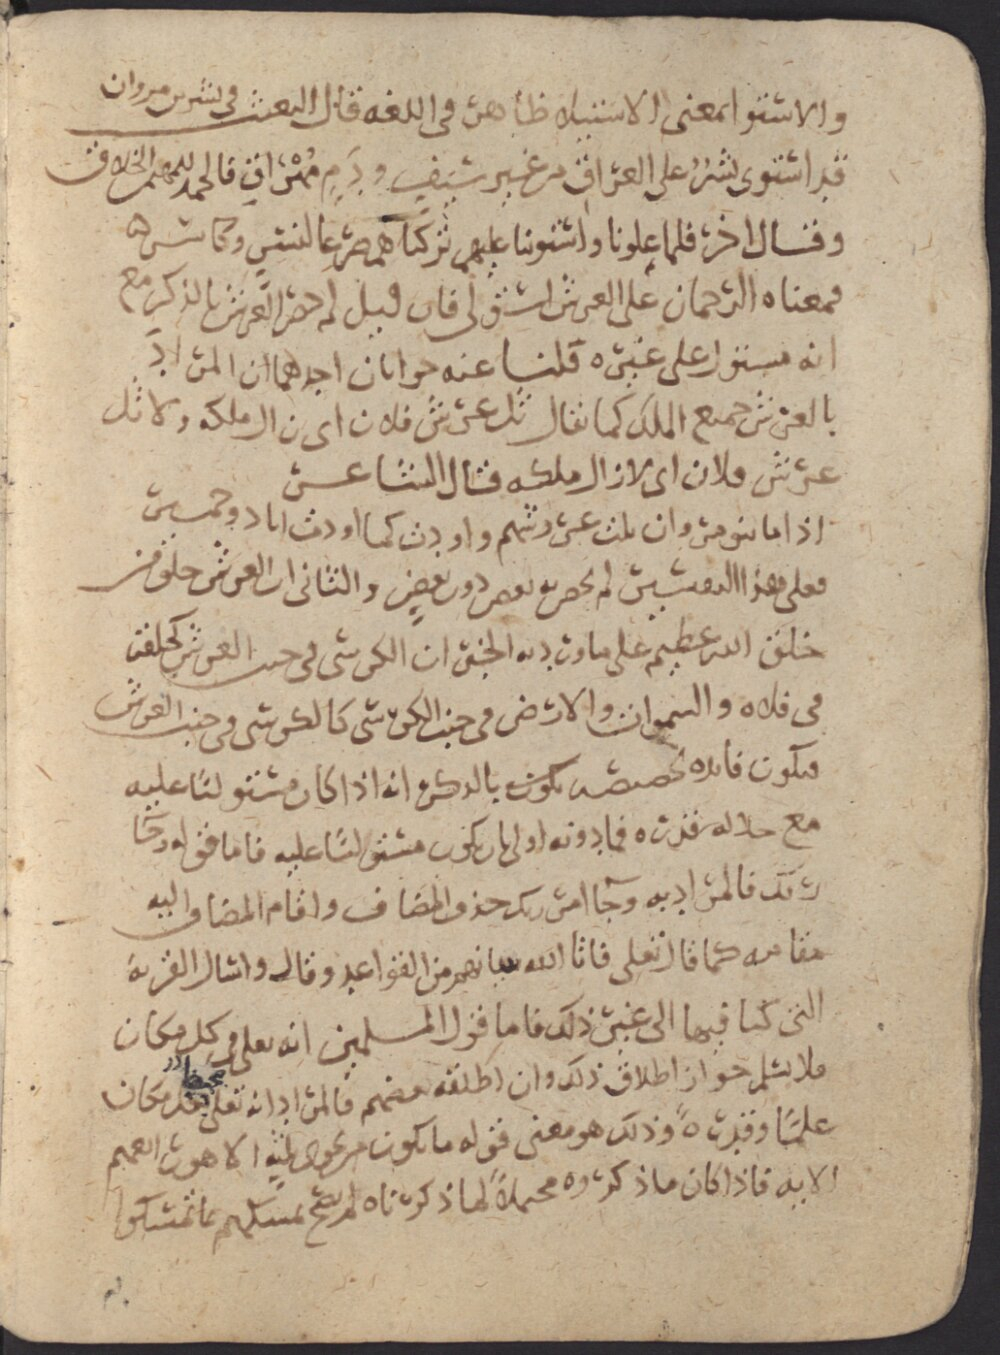 والاستوا بمعنى الاستيلا ظاهر فى اللغه قال البعيث فى بشر بن مروان
قد استوى بشر على العراق من غير سيف ودم مهراق فالحمد للمهيمن الخلاق
وقال اخر فلما علونا واستوينا عليهم تركناهم صرعا لنسر وكاسر ه
فمعناه الرحمان على العرش استولى فان قيل لم خص العرش بالذكر مع
انه مستول على غيره قلنا عنه جوابان احدهما ان المراد
بالعرش جميع الملك كما يقال ثل عرش فلان اى زال ملكه ولا ثل
عرش فلان اى لا زال ملكه قال الشاعر
اذا ما بنو مروان ثلت عروشهم واودت كما اودت اياد وحمير
فعلى هذا التفسير لم يخص به بعض دون بعض والثانى ان العرش خلق من
خلق الله عظيم على ما ورد به الخبر ان الكرسى فى جنب العرش كحلقة
فى فلاه والسموات والارض فى جنب الكرسى كالكرسى فى جنب العرش
فيكون فايده تخصيصه بالذكر انه اذا كان مستوليا عليه
مع جلاله قدره فما دونه اولى بان يكون مستوليا عليه فاما قوله وجا
ربك فالمراد به وجا امر ربك حذف المضاف واقام المضاف اليه
مقامه كما قال تعلى فاتا الله بنيانهم من القواعد وقال واسال القريه
التى كنا فيها الى غير ذلك فاما قول المسلمين انه تعلى فى كل مكان
فلا يسلم جواز اطلاق ذلك وان اطلقه بعضهم فالمراد انه تعلى بكل مكان
علما وقدره وذلك هو معنى قوله ما يكون من نجوى ثلثه الا هو رابعهم
الايه فاذا كان ما ذكروه محتملا لما ذكرناه لم يصح تمسكهم بما تمسكوا